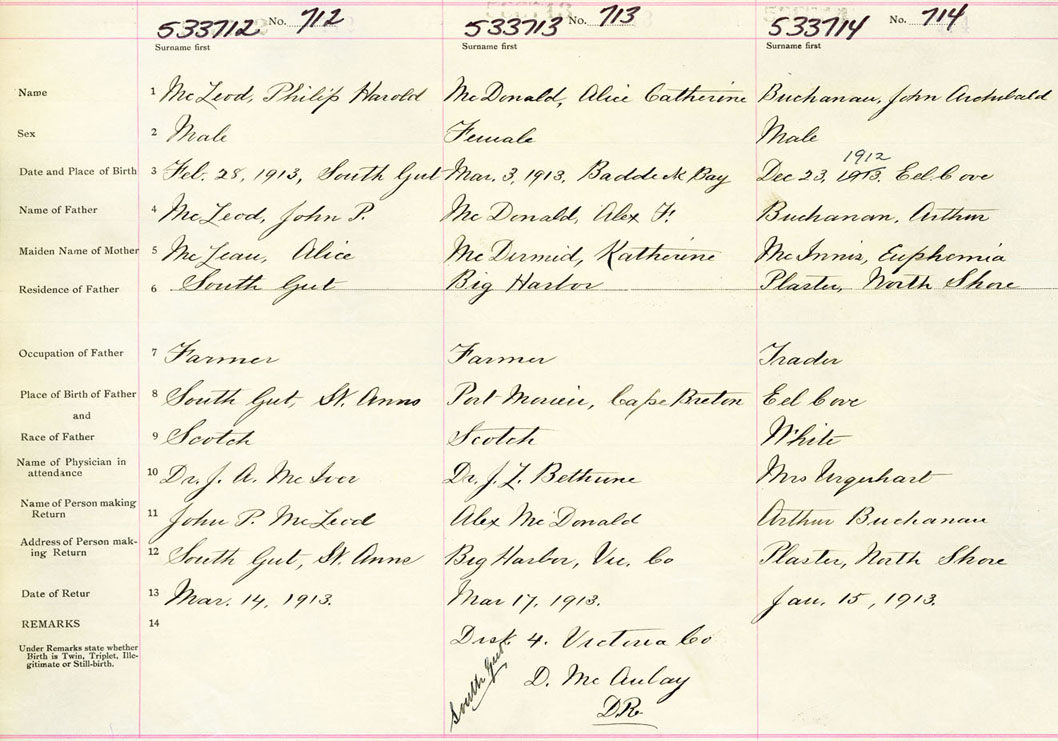 533712 No. 712 533713 No. 713 533714 No. 714
Surname first Surname first Surname first
Name 1 McLeod, Philip Harold McDonald, Alice Catherine Buchanan, John Archibald
Sex 2 Male Female Male
1912
Date and Place of Birth 3 Feb. 28, 1913, South Gut Mar. 3, 1913, Baddeck Bay Dec 23, 1913. Eel Cove
Name of Father 4 McLeod, John P. McDonald, Alex F. Buchanan, Arthur
Maiden Name of Mother 5 McLean, Alice McDermid, Katherine McInnis, Euphemia
Residence of Father 6 South Gut Big Harbor Plaster, North Shore
Occupation of Father 7 Farmer Farmer Trader
Place of Birth of Father 8 South Gut, St. Anns Port Morien, Cape Breton Eel Cove
and
Race of Father 9 Scotch Scotch White
Name of Physician in
attendance 10 Dr. J. A. McIver Dr. J. L. Bethune Mrs Urquhart
Name of Person making
Return 11 John P. McLeod Alex McDonald Arthur Buchanan
Address of Person mak-
ing Return 12 South Gut, St. Anns Big Harbor, Vic. Co Plaster, North Shore
Date of Retur 13 Mar. 14, 1913. Mar 17, 1913. Jan. 15, 1913.
REMARKS 14
Under Remarks state whether
Birth is Twin, Triplet, Ille-
gitimate or Still-birth.
Dist. 4. Victoria Co
South Gut
D. McAulay
DR.